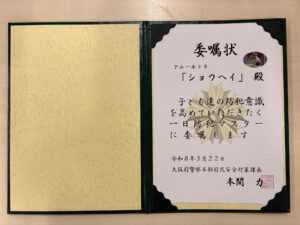 委嘱状
アムールトラ
「ショウヘイ」 殿
子ども達の防犯意識
を高めていただきたく
一日防犯マスター
に委嘱します
令和8年3月22日
大阪府警察本部府民安全対策課長
本間 力